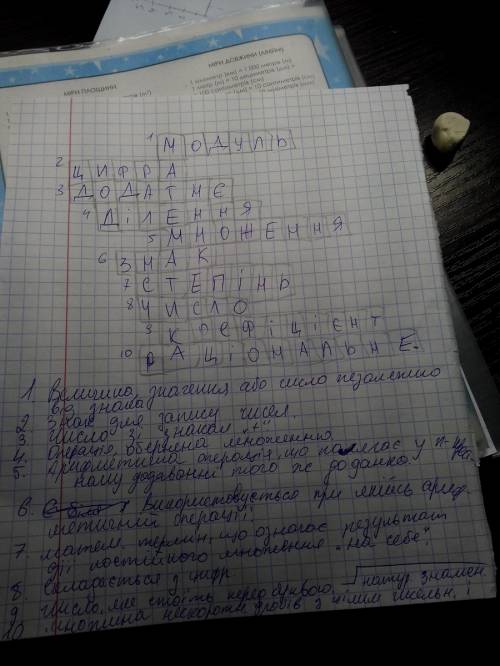 МІРИ ПЛОЩИНИ
МІРИ ДОВЖИНИ (ЛІНІЙНІ)
1 кілометр (км) = 1 000 метрів (м)
1 метр (м) = 10 дециметрів (дм) =
1 МОДУЛЬ
2 ЦИФРА
3 ДОДАТНЄ
4 ДІЛЕННЯ
5 МНОЖЕННЯ
6 ЗНАК
7 СТЕПІНЬ
8 ЧИСЛО
9 КОЕФІЦІЄНТ
10 РАЦІОНАЛЬНЕ.
1. Величина, значення або число незалежно
від знака
2. Знак для запису чисел.
3. Число зі знаком "+"
4. Операція, обернена множенню.
5. Арифметична операція, що полягає у
додаванні того ж доданка.
6. Використовується при якійсь ариф-
метичній операції;
7. матем. термін, що означає результат
дії постійного множення "на себе".
8. Складається з цифр
9. Число, яке стоїть перед буквою. натур знамен.
10 множина нескоротн дробів з цілим чисельн. і